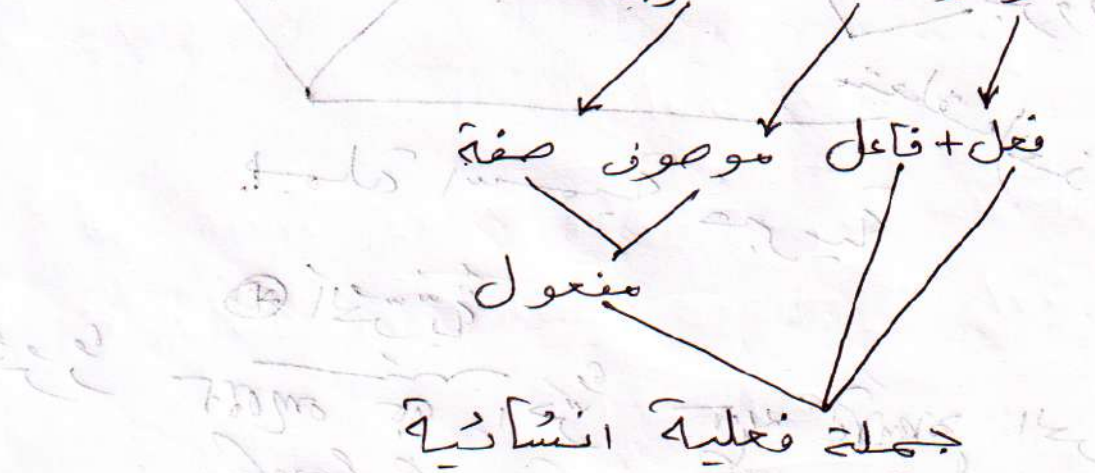 فعل + فاعل موصوف صفة
مفعول
جملة فعلية انشائية